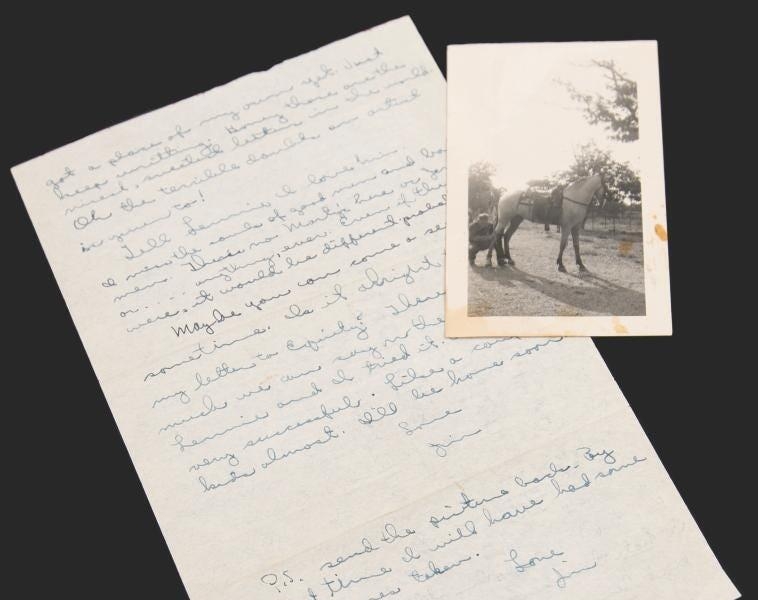 got a place of my own yet. Just
keep writing. Honey those are the
nicest, sweetest letters in the world.
Oh the terrible doubts an artist
is given to!
Tell Lennie I love him.
I miss the words of good men and
men. There's no Morty's here or
or..... anything, ever. Even if
were it would be different
Maybe you can come a
sometime. Is it alright
my letter to Equity? There
much we can say
Lennie and I tried it.
very successful. Like a
kids almost. I'll be home soon
Love
Jim
P.S. send the picture back. By
time I will have had some
taken.
Love
Jim